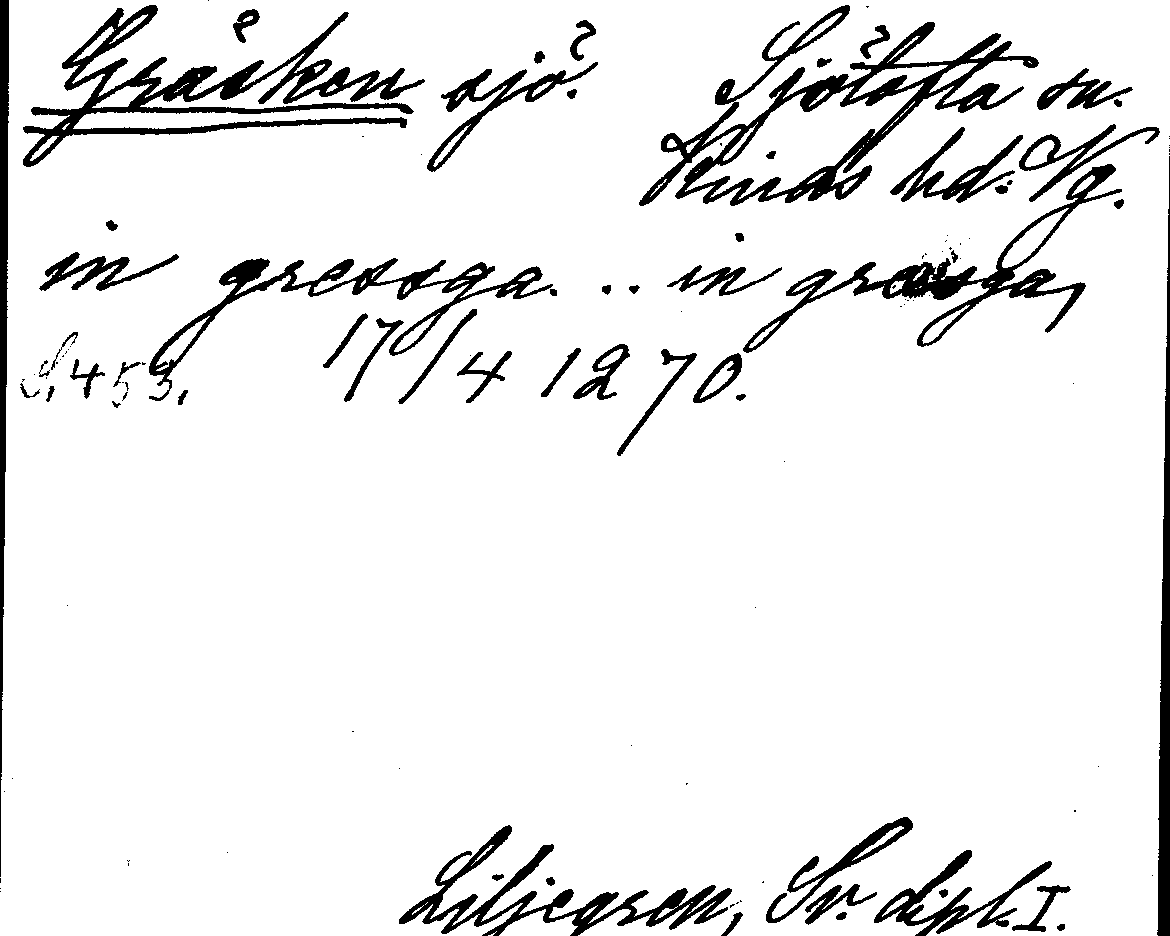 Gråsken sjö. Sjötofta sn.
Kinds hd. Vg.
in gressga. .. in gressga,
S. 453. 17/4 1270.
Liljegren, Sv. dipl. I.